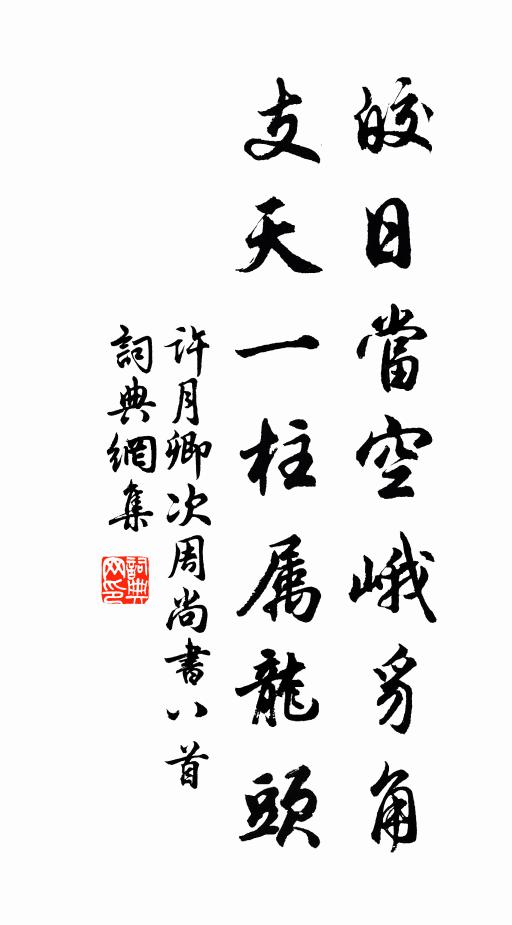 皎日當空峨豸角
支天一柱属龍頭
許月卿次周尚書八首
詞典網集
詞典網印